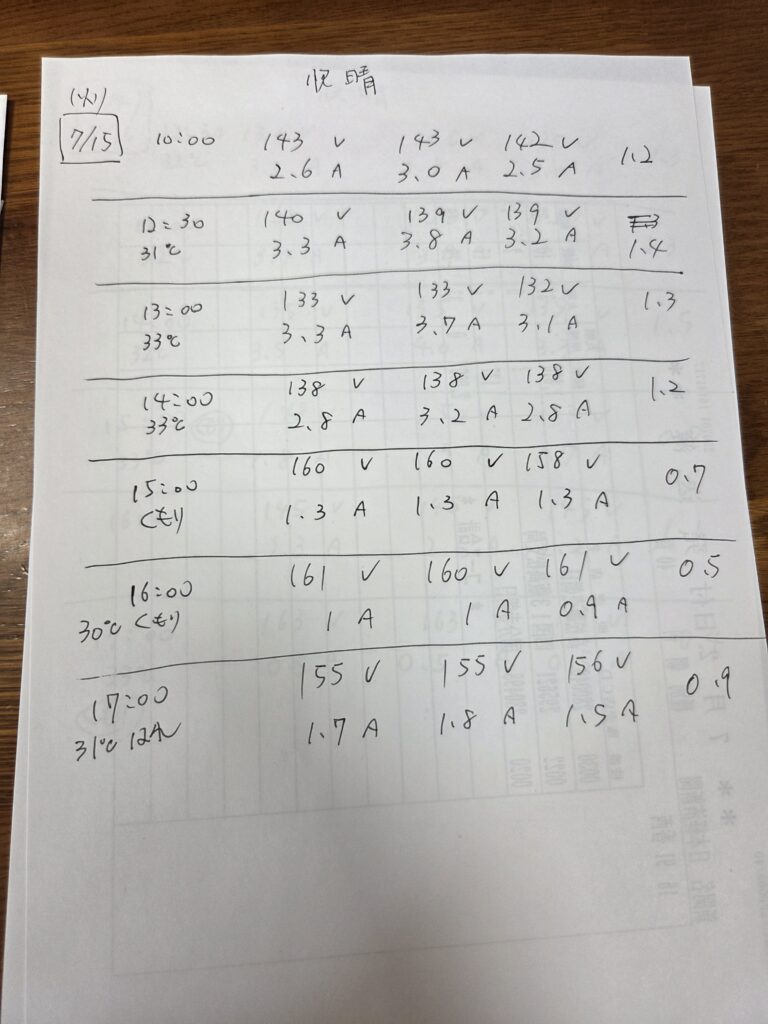 快晴
(火)
7/15 10:00 143 V 143 V 142 V 1.2
2.6 A 3.0 A 2.5 A
12:30 140 V 139 V 139 V
31℃ 3.3 A 3.8 A 3.2 A 1.4
13:00 133 V 133 V 132 V 1.3
33℃ 3.3 A 3.7 A 3.1 A
14:00 138 V 138 V 138 V 1.2
33℃ 2.8 A 3.2 A 2.8 A
15:00 160 V 160 V 158 V 0.7
くもり 1.3 A 1.3 A 1.3 A
16:00 161 V 160 V 161 V 0.5
30℃ くもり 1 A 1 A 0.9 A
17:00 155 V 155 V 156 V 0.9
31℃ はれ 1.7 A 1.8 A 1.5 A